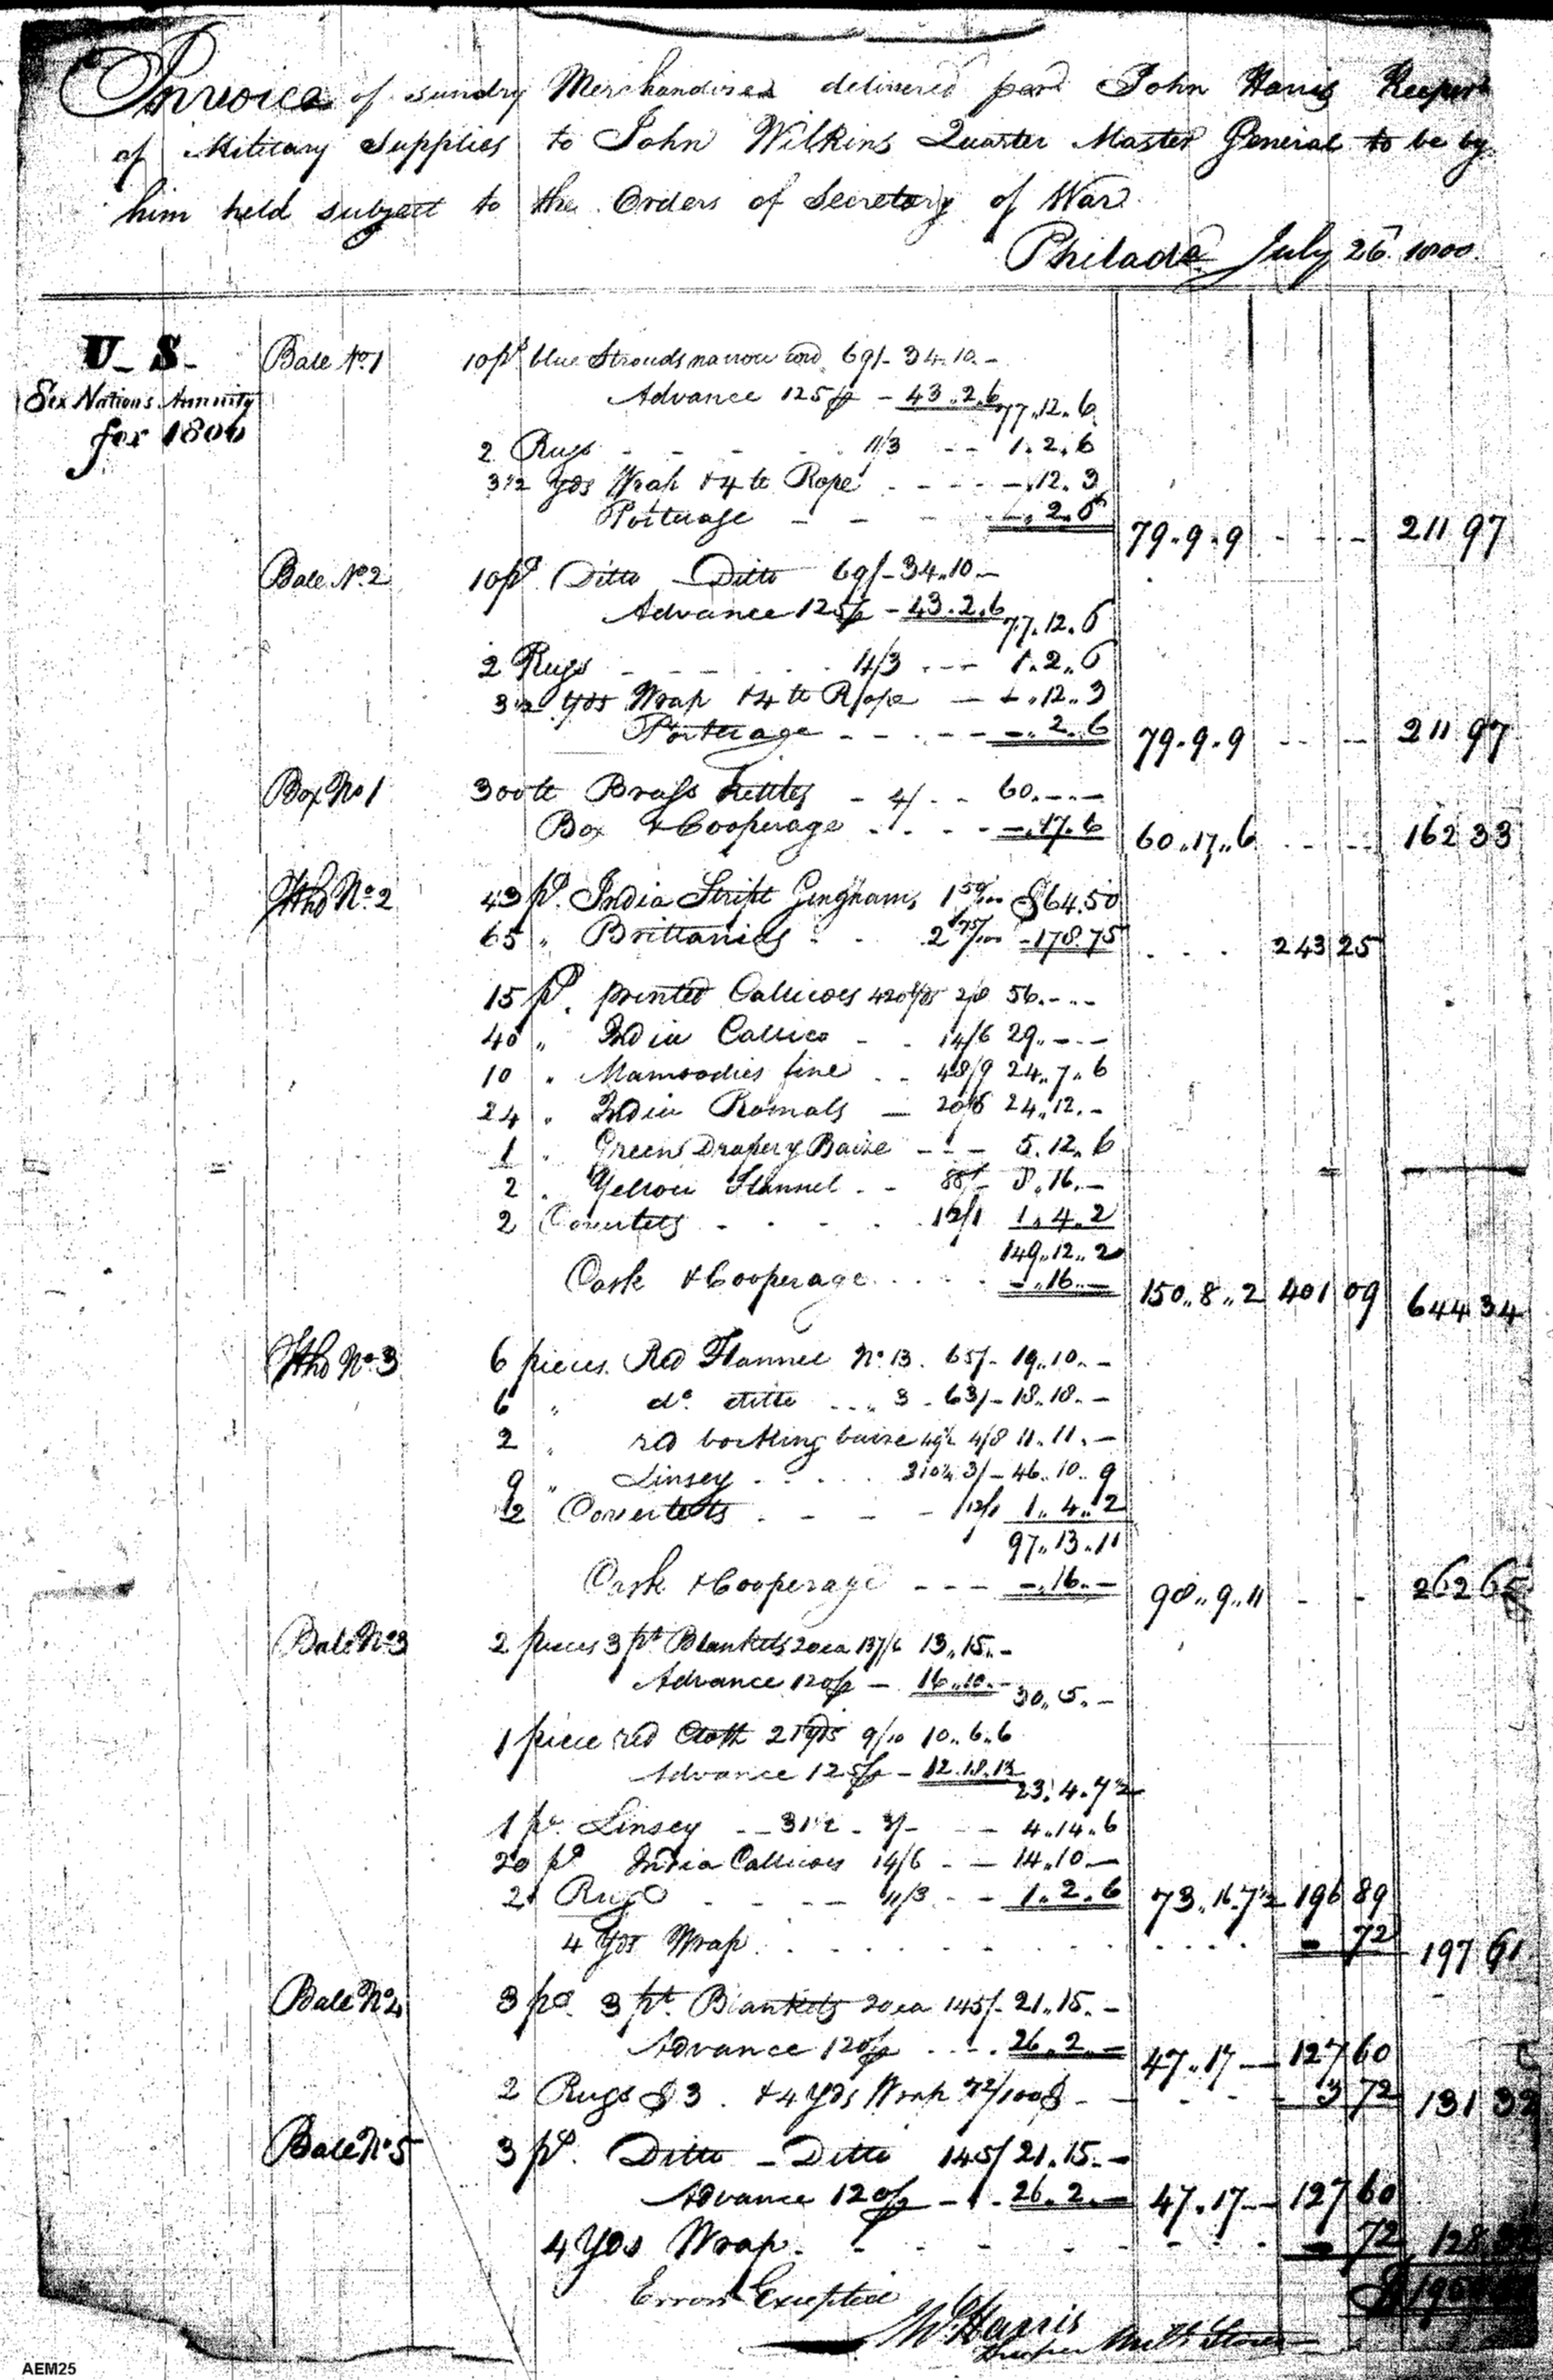 Invoice of sundry Merchandizes delivered per John Harris Keeper
of Military Supplies to John Wilkins Quarter Master General to be by
him held subject to the Orders of Secretary of War.
Philada July 26. 1800.
U_S_
Six Nations Annuity
for 1800
Bale No. 1 10 ps blue Strouds narrow cord 69/- 34.10.-
Advance 125 p - 43.2.6 77.12.6
2 Rugs - - - 11/3 - - 1.2.6
3 1/2 yds Wrap & 4 lb Rope - - - - -.12.3
Porterage - - - -.2.6 79.9.9 - - - 211 97
Bale No. 2 10 ps Ditto Ditto 69/- 34.10.-
Advance 125 p - 43.2.6 77.12.6
2 Rugs - - - 11/3 - - - 1.2.6
3 1/2 yds Wrap & 4 lb Rope - -.12.3
Porterage - - - - - -.2.6 79.9.9 - - - 211 97
Box No 1 300 lb Brass kettles - 4/ - - 60.-.-
Box & Cooperage - - - - -.17.6 60.17.6 - - - 162 33
Hhd No. 2 43 ps. India Stript Ginghams 1 50/100 $64.50
65 " Brittanies - - 2 75/100 - 178.75 - - - 243 25
15 ps. printed Callicoes 420 yds 2/8 56.-.-
40 " India Callico - - 14/6 29.-.-
10 " Mamoodies fine - - 48/9 24.7.6
24 " India Romals - 20/6 24.12.-
1 " Green Drapery Baize - - - 5.12.6
2 " Yellow Flannel - - 88/- 8.16.-
2 Coverlets - - - - 12/1 1.4.2
149.12.2
Cask & Cooperage - - - - -.16.- 150.8.2 401 09 644 34
Hhd No. 3 6 pieces Red Flannel No. 13. 65/- 19.10.-
6 " do. ditto - - " 3 - 63/- 18.18.-
2 " red booking baize 49 1/2 4/8 11.11.-
9 " Linsey - - - 310 1/4 3/- 46.10.9
2 Coverlets - - - - 12/1 1.4.2
97.13.11
Cask & Cooperage - - - -.16.- 98.9.11 - - 262 65
Bale No 3 2 pieces 3 pt Blankets 20 ea 137/6 13.15.-
Advance 120 p - 16.10.- 30.5.-
1 piece red Cloth 21 yds 9/10 10.6.6
Advance 125 p - 12.18.1 1/2 23.4.7 1/2
1 ps. Linsey - - 31 1/2 - 3/- - - 4.14.6
20 ps India Callicoes 14/6 - - 14.10.-
2 Rugs - - - - 11/3 - - 1.2.6 73.16.7 1/2 196 89
4 Yds Wrap. - - - - - - - - - - - 72 197 61
Bale No 4 3 ps. 3 pt. Blankets 20 ea 145/- 21.15.-
Advance 120 p - - - 26.2.- 47.17.- 127 60
2 Rugs $3. & 4 Yds Wrap 72/100 $ - - - - - 3 72 131 32
Bale No 5 3 ps. Ditto - Ditto 145/ 21.15.-
Advance 120 p - - 26.2.- 47.17.- 127 60
4 Yds Wrap. - - - - - - - - - 72 128 32
Errors Excepted
Harris
Keeper Milty Stores
AEM25